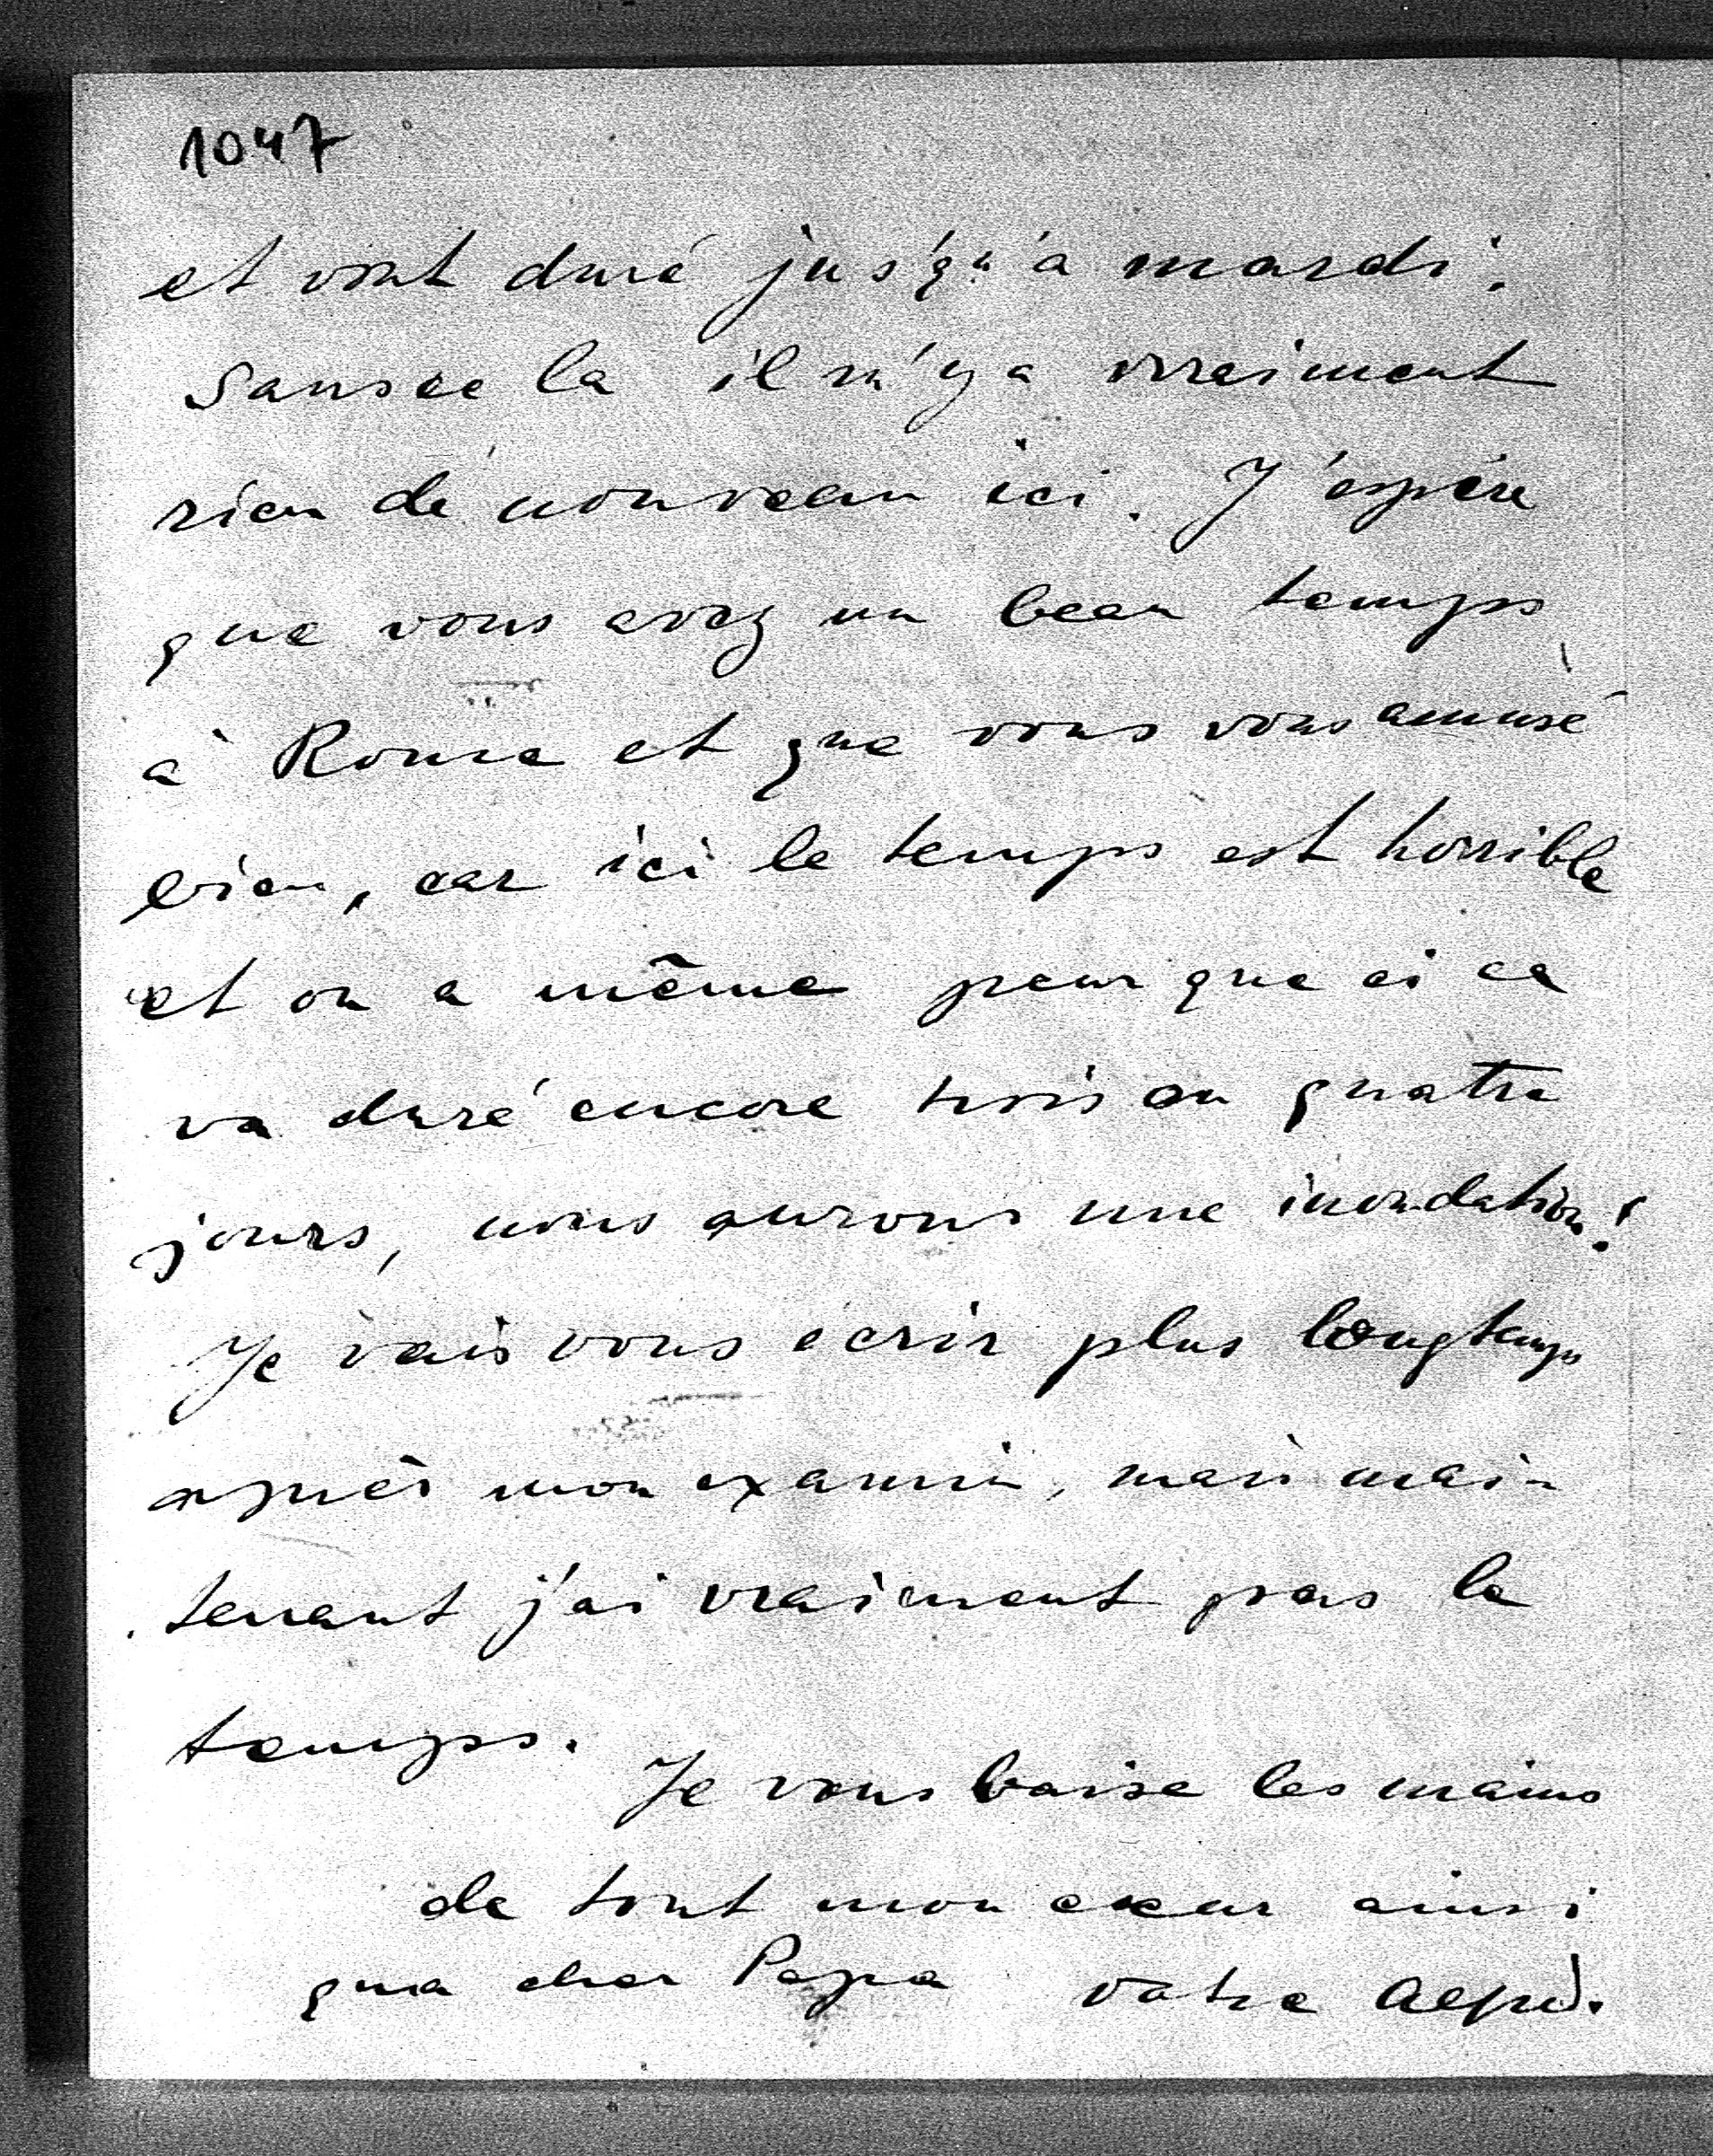 1047
et vont duré jus'qu'a mardi.
Sans ce la il n'y a vraiment
rien de nouveau ici. J'espère
que vous avez un beau temps
à Rome et que vous vous amusé
bien, car ici le temps est horrible
et on a même peur que si ce
va duré encore trois ou quatre
jours, nous aurons une inondation!
Je vais vous ecrir plus longtemps
après mon examin, mais main
tenant j'ai vraiment pas le
temps.
Je vous baise les mains
de tout mon cœur ainsi
qua cher Papa votre